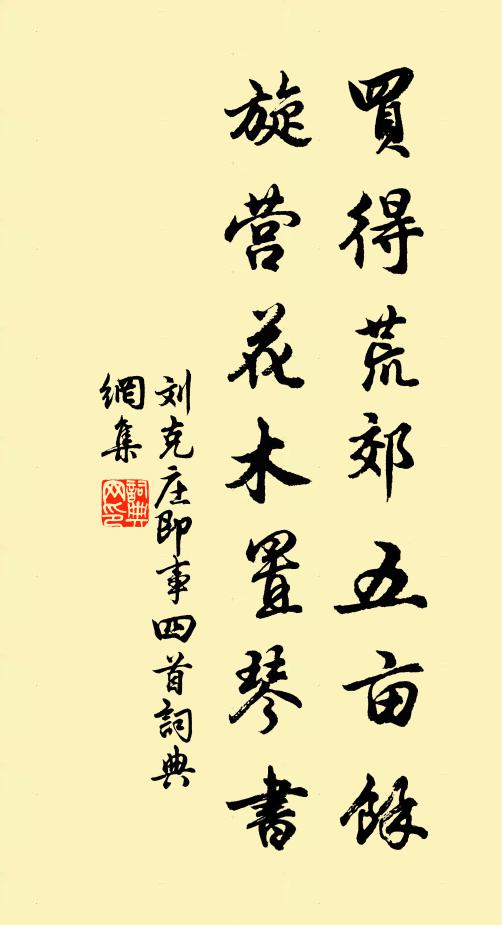 買得荒郊五亩餘
旋营花木置琴書
刘克庄即事四首詞典
網集
詞典
网印